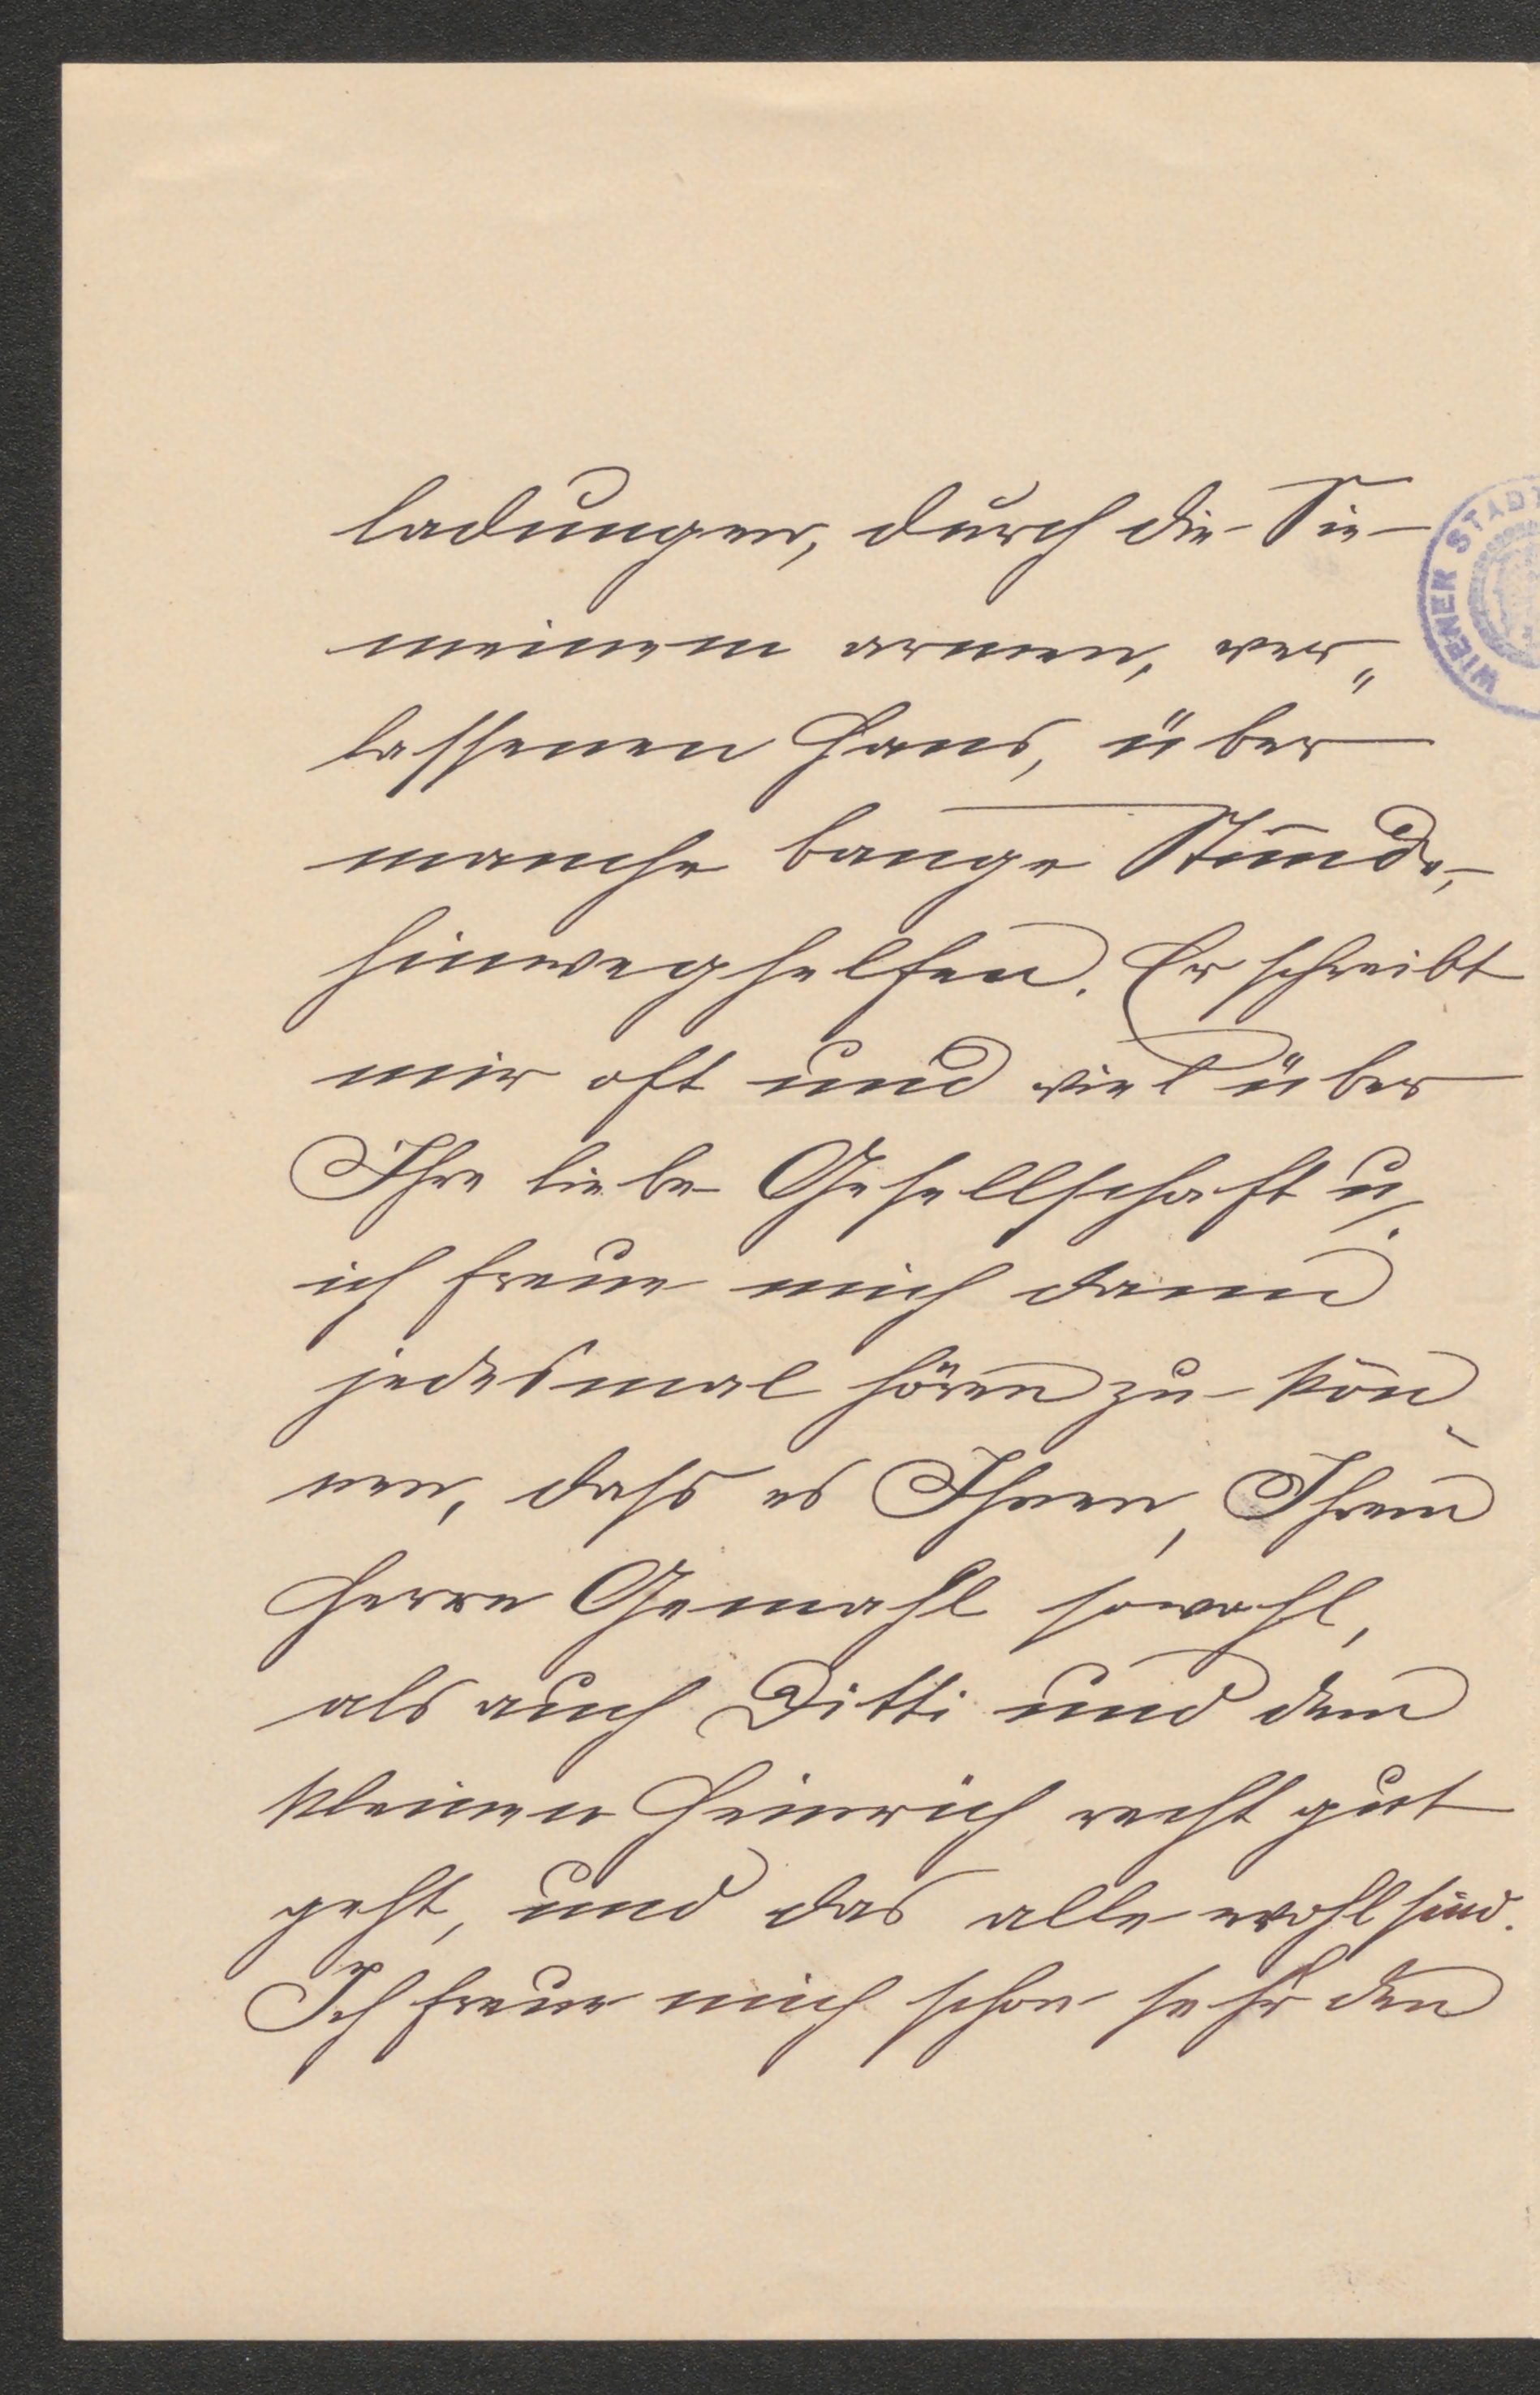 ladungen, durch die Sie
meinem armen, ver„
lassenen Hans, über
manche bange Stunde,
hinweghelfen. Er schreibt
mir oft und viel über
Ihre liebe Gesellschaft u.
ich freue mich dann
jedesmal hören zu kön-
nen, dass es Ihnen, Ihrem
Herrn Gemahl sowohl,
als auch Ditti und dem
kleinen Heinrich recht gut
geht, und das alle wohl sind.
Ich freue mich schon sehr den
WIENER STADT